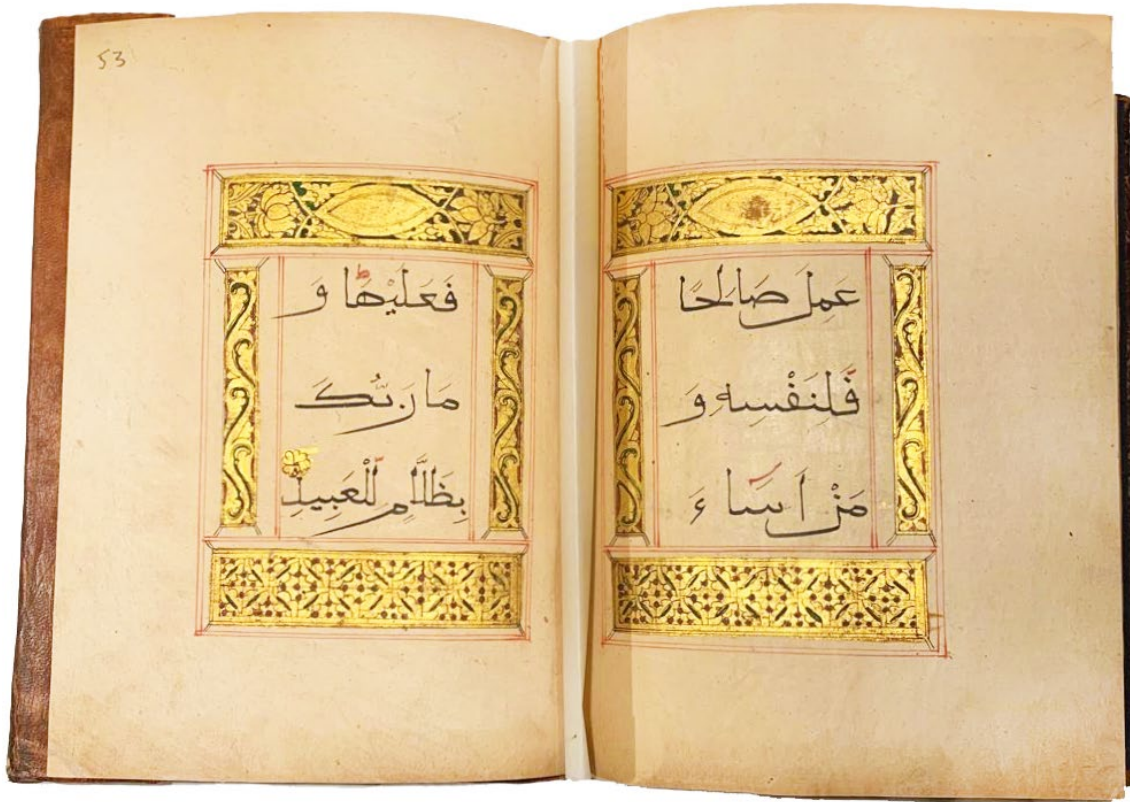 عَمِلَ صَالِحًا
فَلِنَفْسِهِ وَ
مَنْ اَسَاءَ
53
فَعَلَيْهَا وَ
مَا رَبُّكَ
بِظَلَّامٍ لِلْعَبِيدِ